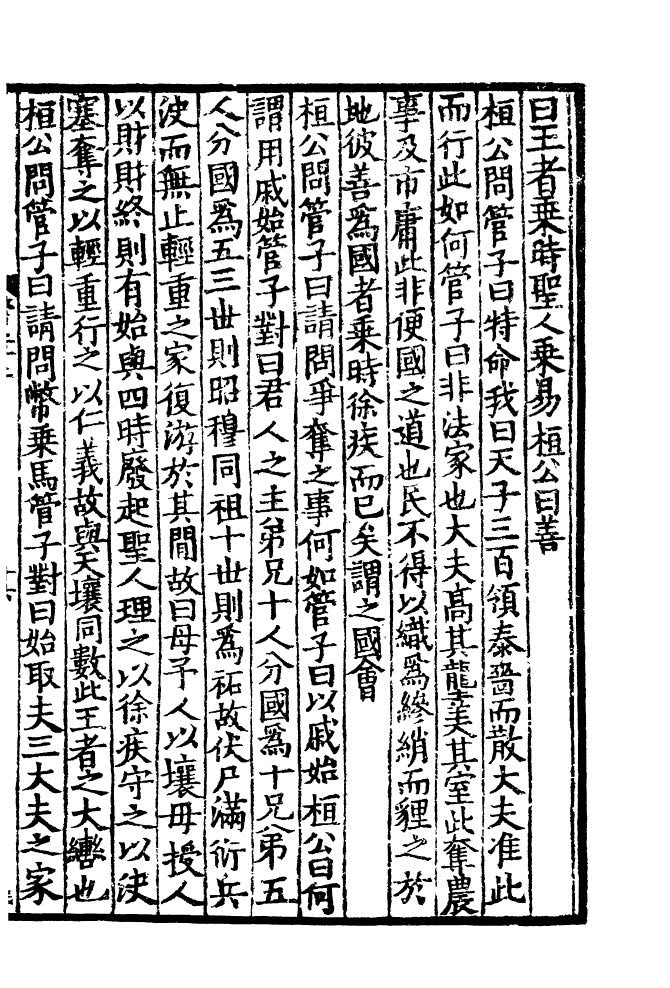 曰王者乗時聖人乗易桓公曰善
桓公問管子曰特命我曰天子三百領泰嗇而散大夫准此
而行此如何管子曰非法家也大夫髙其壟美其室此奪農
事及市庸此非便國之道也民不得以織爲縿綃而貍之於
地彼善爲國者乗時徐疾而已矣謂之國會
桓公問管子曰請問爭奪之事何如管子曰以戚始桓公曰何
謂用戚始管子對曰君人之主弟兄十人分國爲十兄弟五
人分國爲五三世則昭穆同祖十世則爲祏故伏尸滿衍兵
决而無止輕重之家復游於其間故曰毋予人以壤毋授人
以財財終則有始與四時廢起聖人理之以徐疾守之以决
塞奪之以輕重行之以仁義故與天壤同數此王者之大轡也
桓公問管子曰請問幣乗馬管子對曰始取夫三大夫之家